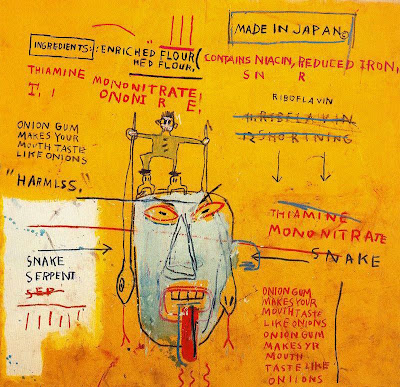 MADE IN JAPAN©
INGREDIENTS: ENRICHED FLOUR (
HED FLOUR,
CONTAINS NIACIN, REDUCED IRON,
S N R
THIAMINE
MONONITRATE!
T. I
ONONI R E!
RIBOFLAVIN
11. RIBFLAVIN
12 SHORTNING
ONION GUM
MAKES YOUR
MOUTH TASTE
LIKE ONIONS
"HARMLSS."
THIAMINE
MONONITRATE
SNAKE
SNAKE
SERPENT
SEP
ONION GUM
MAKES YOUR
MOUTH TASTE
LIKE ONIONS
ONION GUM
MAKES YR
MOUTH
TASTE LIKE
ONIIONS